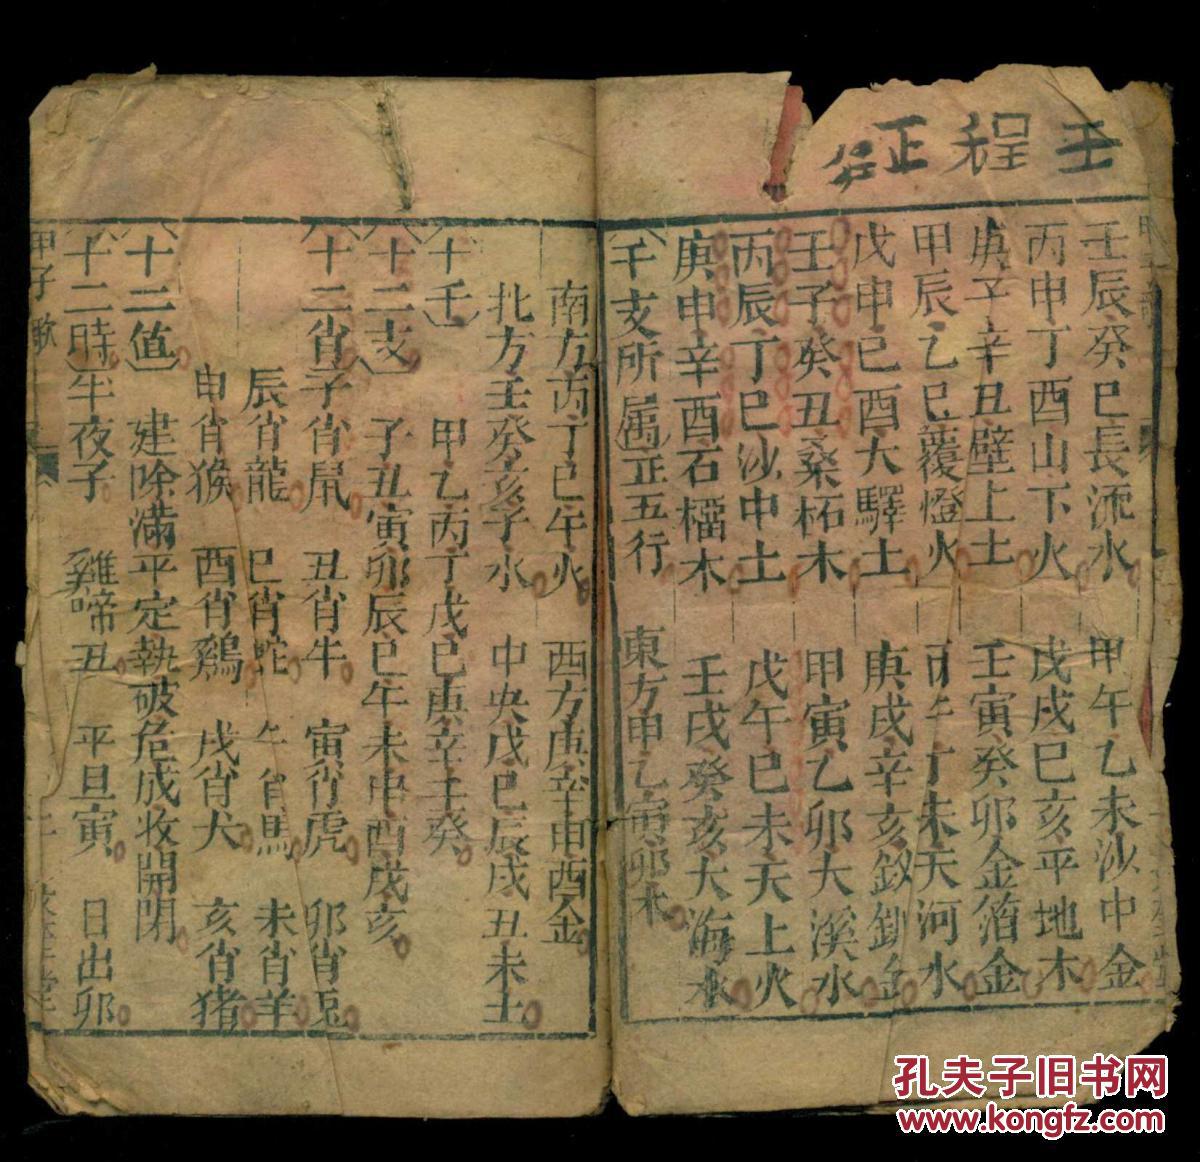 壬程正
壬辰癸巳長流水　甲午乙未沙中金
丙申丁酉山下火　戊戌己亥平地木
庚子辛丑壁上土　壬寅癸卯金箔金
甲辰乙巳覆燈火　丙午丁未天河水
戊申己酉大驛土　庚戌辛亥釵釧金
壬子癸丑桑柘木　甲寅乙卯大溪水
丙辰丁巳沙中土　戊午己未天上火
庚申辛酉石榴木　壬戌癸亥大海水
干支所屬　正五行　東方甲乙寅卯木
南方丙丁巳午火　西方庚辛申酉金
北方壬癸亥子水　中央戊己辰戌丑未土
十干　甲乙丙丁戊己庚辛壬癸
十二支　子丑寅卯辰巳午未申酉戌亥
十二肖　子肖鼠　丑肖牛　寅肖虎　卯肖兎
辰肖龍　巳肖蛇　午肖馬　未肖羊
申肖猴　酉肖鷄　戌肖犬　亥肖猪
十二值　建除滿平定執破危成收開閉
十二時　半夜子　雞啼丑　平旦寅　日出卯
甲子歌
孔夫子旧书网
www.kongfz.com